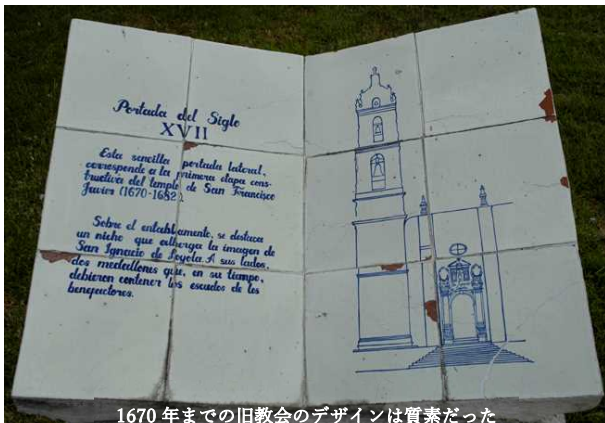 Portada del Siglo
XVII
Esta sencilla portada lateral,
corresponde a la primera etapa cons-
tructiva del templo de San Francisco
Javier (1670-1682).
Sobre el entablamento, se destaca
un nicho que alberga la imagen de
San Ignacio de Loyola. A sus lados,
dos medallones que, en su tiempo,
debieron contener los escudos de los
benefactores.
1670 年までの旧教会のデザインは質素だった